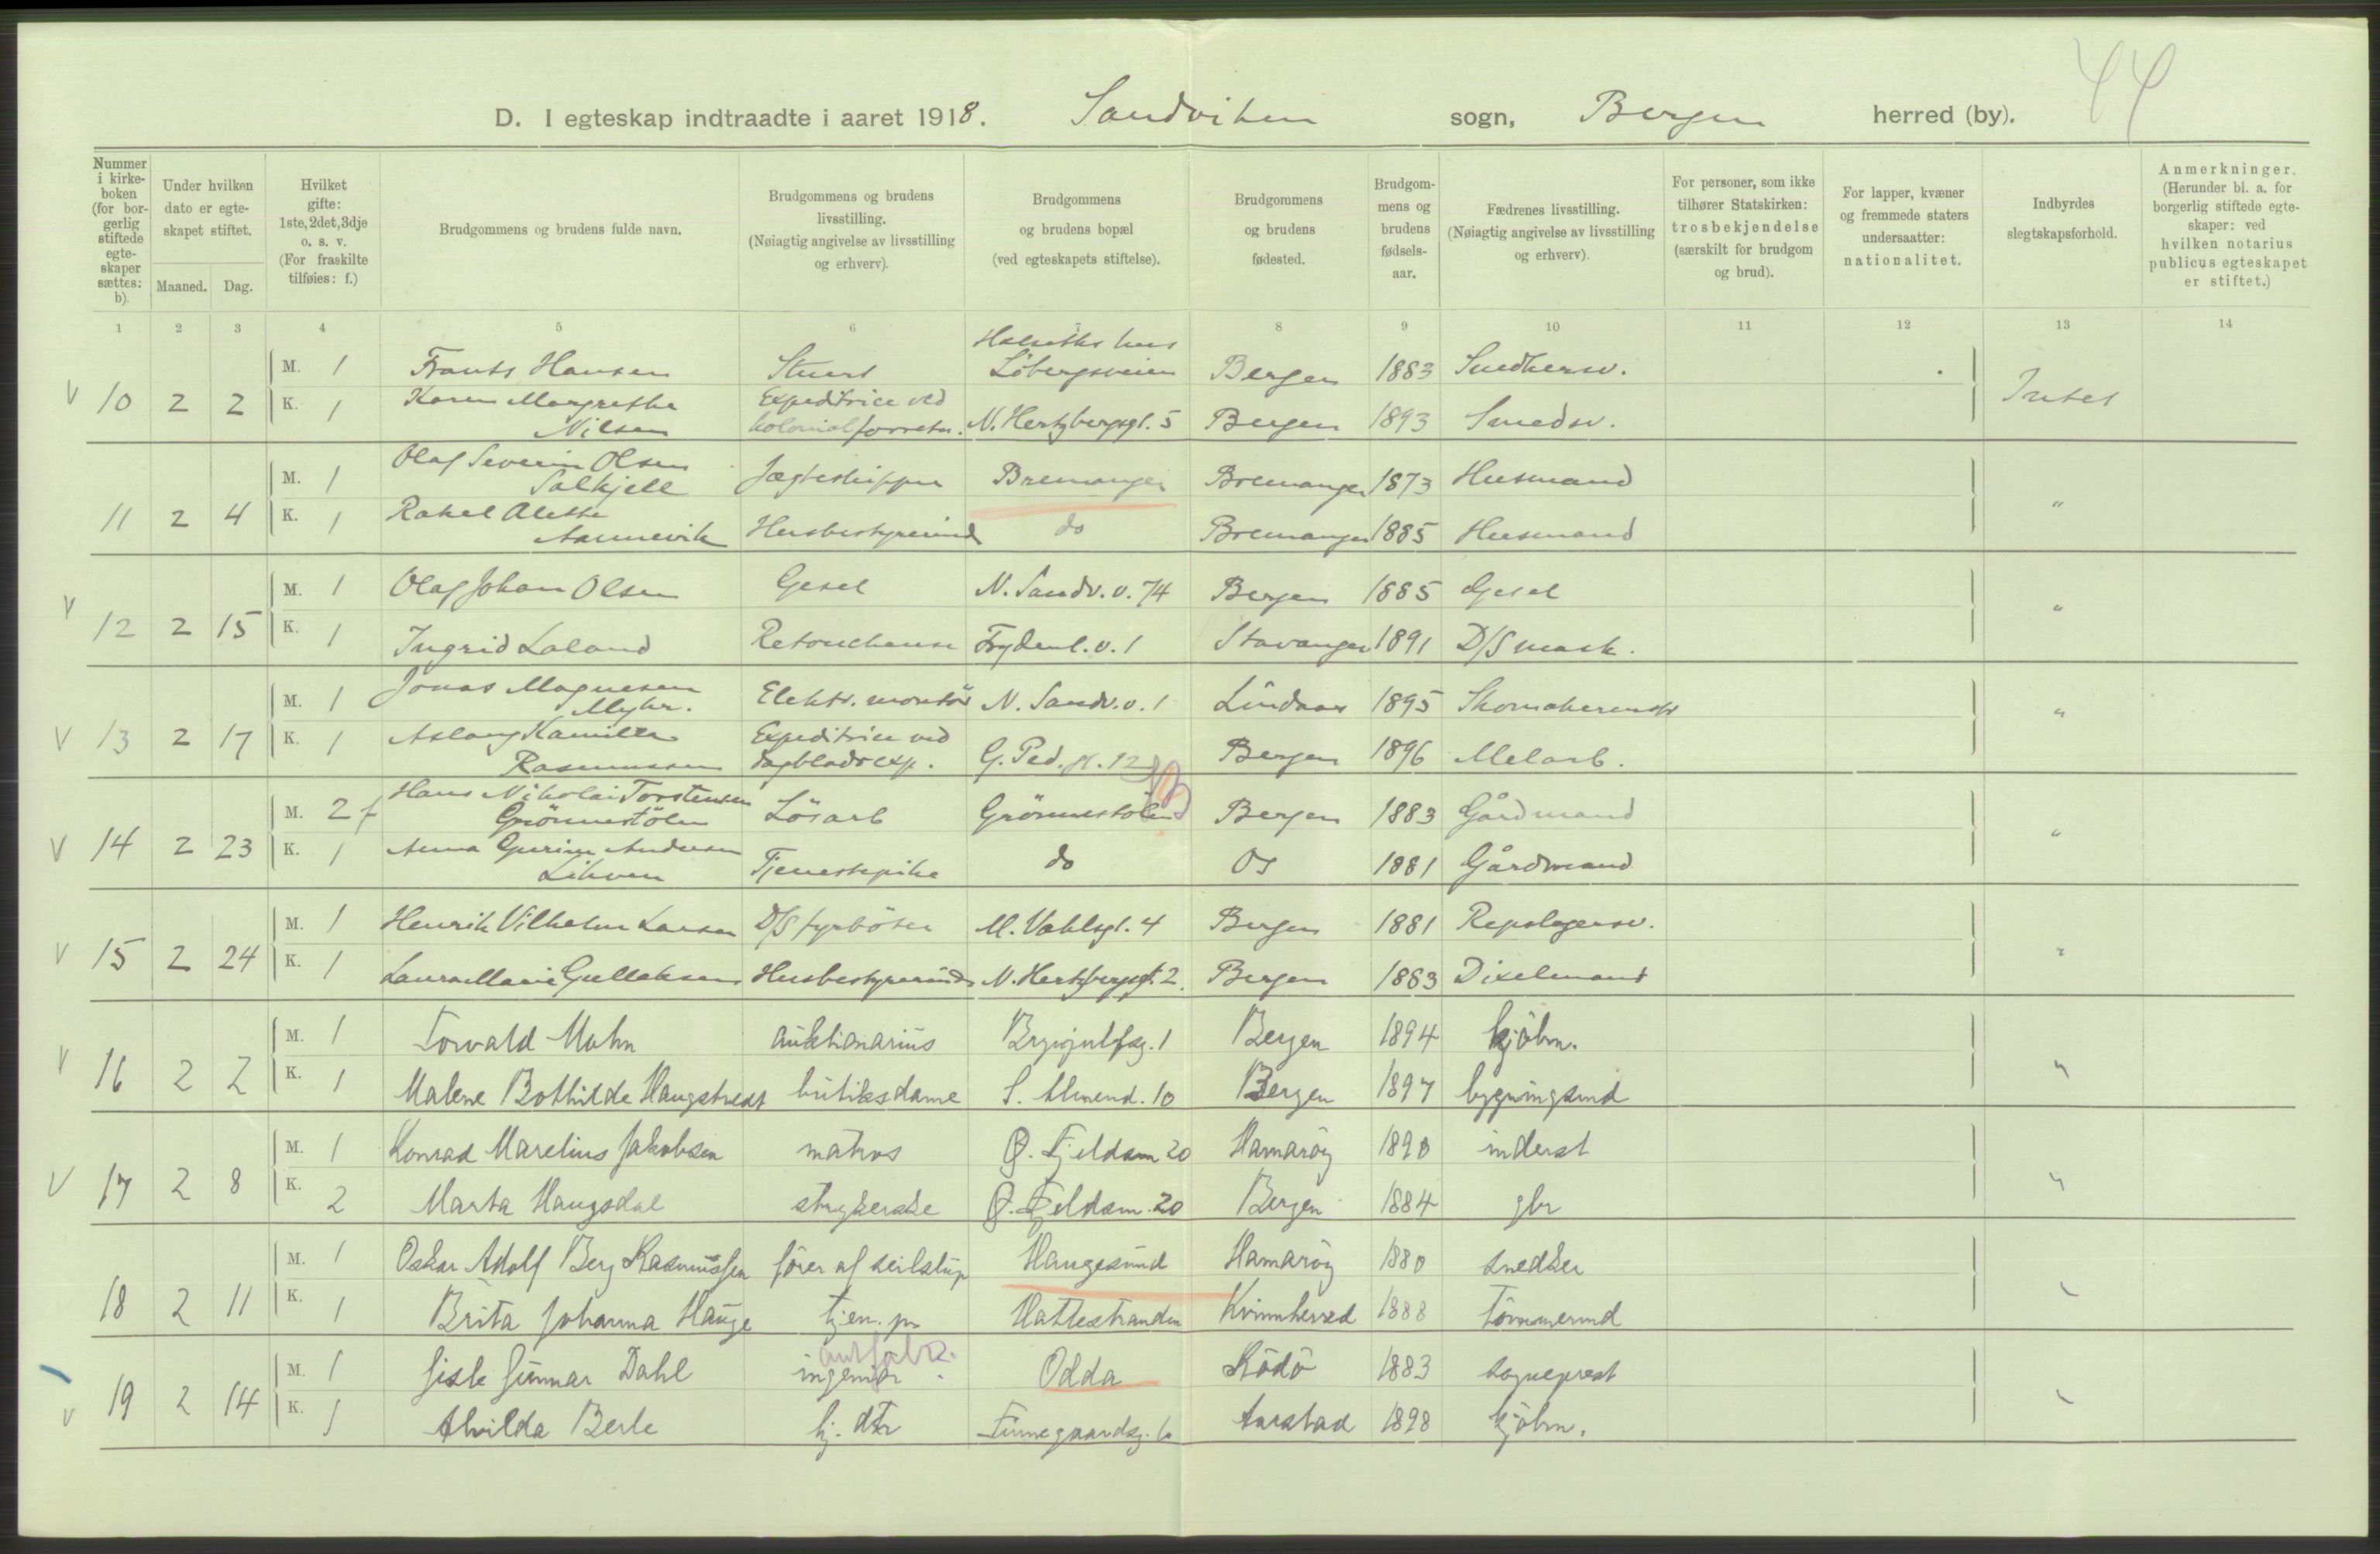 44
D. I egteskap indtraadte i aaret 1918. Sandviken sogn, Bergen herred (by).
Nummer i kirke-boken (for bor-gerlig stiftede egte-skaper sættes: b).
Under hvilken dato er egte-skapet stiftet.
Maaned. Dag.
Hvilket gifte: 1ste, 2det, 3dje o. s. v. (For fraskilte tilføies: f.)
Brudgommens og brudens fulde navn.
Brudgommens og brudens livsstilling. (Nøiagtig angivelse av livsstilling og erhverv).
Brudgommens og brudens bopæl (ved egteskapets stiftelse).
Brudgommens og brudens fødested.
Brudgom-mens og brudens fødsels-aar.
Fædrenes livsstilling. (Nøiagtig angivelse av livsstilling og erhverv).
For personer, som ikke tilhører Statskirken: trosbekjendelse (særskilt for brudgom og brud).
For lapper, kvæner og fremmede staters undersaatter: nationalitet.
Indbyrdes slegtskapsforhold.
Anmerkninger. (Herunder bl. a. for borgerlig stiftede egte-skaper: ved hvilken notarius publicus egteskapet er stiftet.)
1 2 3 4 5 6 7 8 9 10 11 12 13 14
Løbergsveien
M. 1 Frants Hansen Stuert Bergen 1883 Snedkersv.
V 10 2 2 K. 1 Karen Margrethe Expeditrice ved Intet
Nilsen kolonialforretn. N. Hertzbergsgt. 5 Bergen 1893 Smedsv.
Olaf Severin Olsen
M. 1 Salkjell Jægteskipper Bremanger Bremanger 1873 Husmand
11 2 4 K. 1 Rakel Alette "
Aannevik Husbestyrerinde do Bremanger 1885 Husmand
V M. 1 Olaf Johan Olsen Gesel N. Sandv. v. 74 Bergen 1885 Gesel
12 2 15 K. 1 Ingrid Laland Retoucheuse Frydenl. v. 1 Stavanger 1891 D/S mask. "
Jonas Magnesen
M. 1 Myhr. Elektr. montør N. Sandv. v. 1 Lindaas 1895 Skomakermstr
V 13 2 17 K. 1 Aslaug Kamilla Expeditrice ved "
Rasmussen dagbladsexp. G. Ped. gt. 12 Bergen 1896 Melarb.
Hans Nikolai Torstensen
M. 2 f Grönnestölen Lösarb Grönnestölen Bergen 1883 Gårdmand
V 14 2 23 K. 1 Anna Gurine Andersen "
Likven Tjenestepike do Os 1881 Gårdmand
M. 1 Henrik Vilhelm Larsen D/S fyrböter M. Vahlsgt. 4 Bergen 1881 Repslagersv.
V 15 2 24 K. 1 Laura Marie Gullaksen Husbestyrerinde N. Hertzbergsgt. 2. Bergen 1883 Dixelmand "
M. 1 Torvald Mohn auktionarius Brynjulfsg. 1 Bergen 1894 kjöbm.
V 16 2 2 K. 1 Malene Bothilde Haugstvedt butiksdame S. Almend. 10 Bergen 1897 bygningssnd "
M. 1 Konrad Marelius Jakobsen matros Ø. Fjeldsm 20 Hamaröy 1890 inderst
V 17 2 8 K. 2 Marta Haugsdal strykerske Ø. Fjeldsm. 20 Bergen 1884 gbr "
M. 1 Oskar Adolf Berg Rasmussen förer af seilskip Haugesund Hamaröy 1880 snedker
18 2 11 K. 1 Brita Johanna Hauge tjen. p. Hattestranden Kvinnherred 1888 Tömmermd "
M. 1 Gisle Gunnar Dahl ingeniör Odda Rödö 1883 sogneprest
V 19 2 14 K. 1 Alvilda Berle kj. dtr Finnegaardsg. 6 Aarstad 1898 kjöbm. "